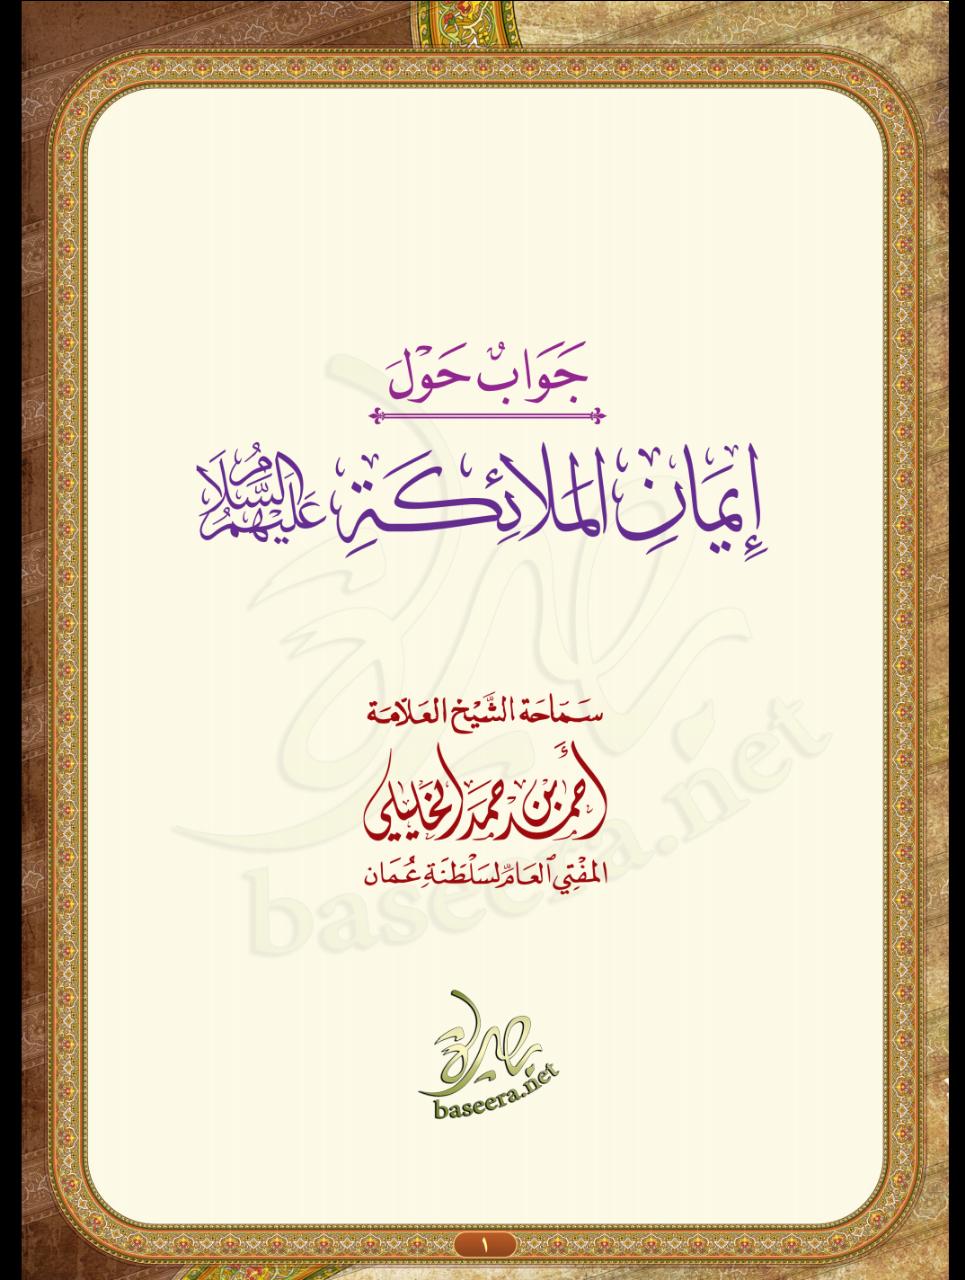 جَوَابٌ حَوْلَ
إِيمَانِ المَلَائِكَةِ عَلَيْهِمُ السَّلَامُ
سَمَاحَة الشَّيْخ العَلّامَة
أحمد بن حمد الخليلي
المُفْتِي العَامّ لسَلْطَنَةِ عُمَان
بصيرة
baseera.net
بصيرة
baseera.net
١